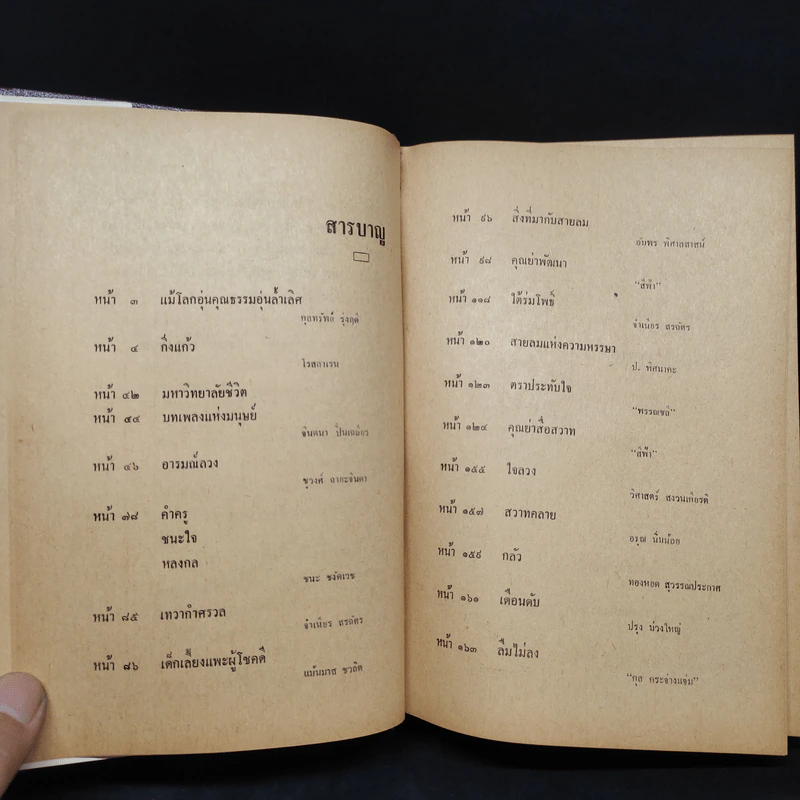 สารบาญ
หน้า ๓ แม้โลกอุ่นคุณธรรมอุ่นล้ำเลิศ
กุลทรัพย์ รุ่งฤดี
หน้า ๔ กิ่งแก้ว
โรสลาเรน
หน้า ๔๒ มหาวิทยาลัยชีวิต
หน้า ๔๔ บทเพลงแห่งมนุษย์
จินตนา ปิ่นเฉลียว
หน้า ๔๖ อารมณ์ลวง
ชูวงศ์ ฉายะจินดา
หน้า ๗๘ คำครู
ชนะใจ
หลงกล
ชนะ
หน้า ๘๕ เทวากำศรวล
จำเนียร สรฉัตร
หน้า ๘๖ เด็กเลี้ยงแพะผู้โชคดี
แม้นมาส ชวลิต
หน้า ๙๖ สิ่งที่มากับสายลม
อัมพร
หน้า ๙๘ คุณย่าพัฒนา
"สีฟ้า"
หน้า ๑๑๘ ใต้ร่มโพธิ์
จำเนียร สรฉัตร
หน้า ๑๒๐ สายลมแห่งความหรรษา
ป. พิศนาคะ
หน้า ๑๒๓ ตราประทับใจ
"พรรณชลี"
หน้า ๑๒๔ คุณย่าสื่อสวาท
"สีฟ้า"
หน้า ๑๕๕ ใจลวง
วิศาสตร์ สงวนเกียรติ
หน้า ๑๕๗ สวาทคลาย
อรุณ นิ่มน้อย
หน้า ๑๕๙ กลัว
ทองหยด สุวรรณประกาศ
หน้า ๑๖๑ เดือนดับ
ปรุง บ่วงใหญ่
หน้า ๑๖๓ ลืมไม่ลง
"กุล กระจ่างแจ่ม"